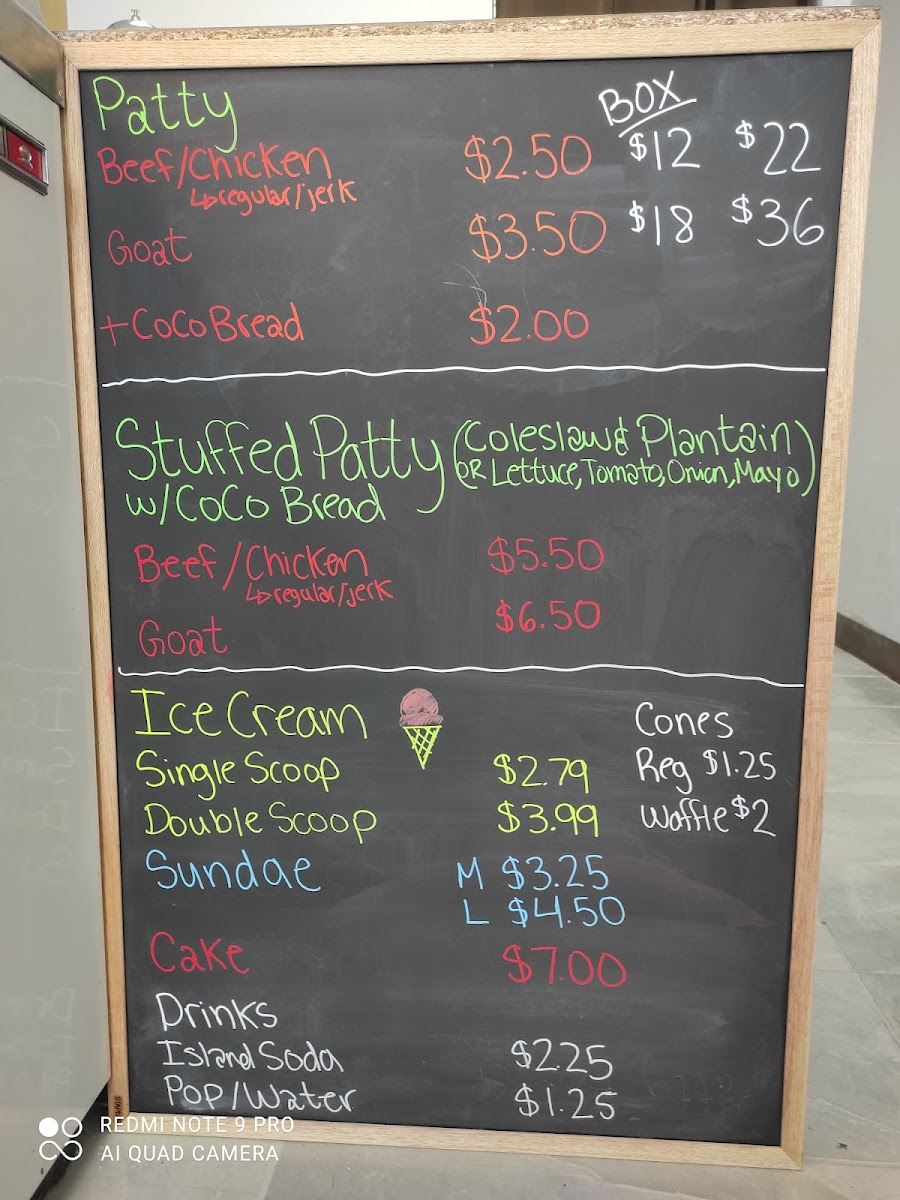 Patty BOX
Beef/Chicken $2.50 $12 $22
↳regular/jerk
Goat $3.50 $18 $36
+CoCo Bread $2.00
Stuffed Patty (Coleslaw & Plantain
w/CoCo Bread OR Lettuce, Tomato, Onion, Mayo)
Beef/Chicken $5.50
↳regular/jerk
Goat $6.50
Ice Cream Cones
Single Scoop $2.79 Reg $1.25
Double Scoop $3.99 Waffle $2
Sundae M $3.25
L $4.50
Cake $7.00
Drinks
Island Soda $2.25
Pop/Water $1.25
REDMI NOTE 9 PRO
AI QUAD CAMERA